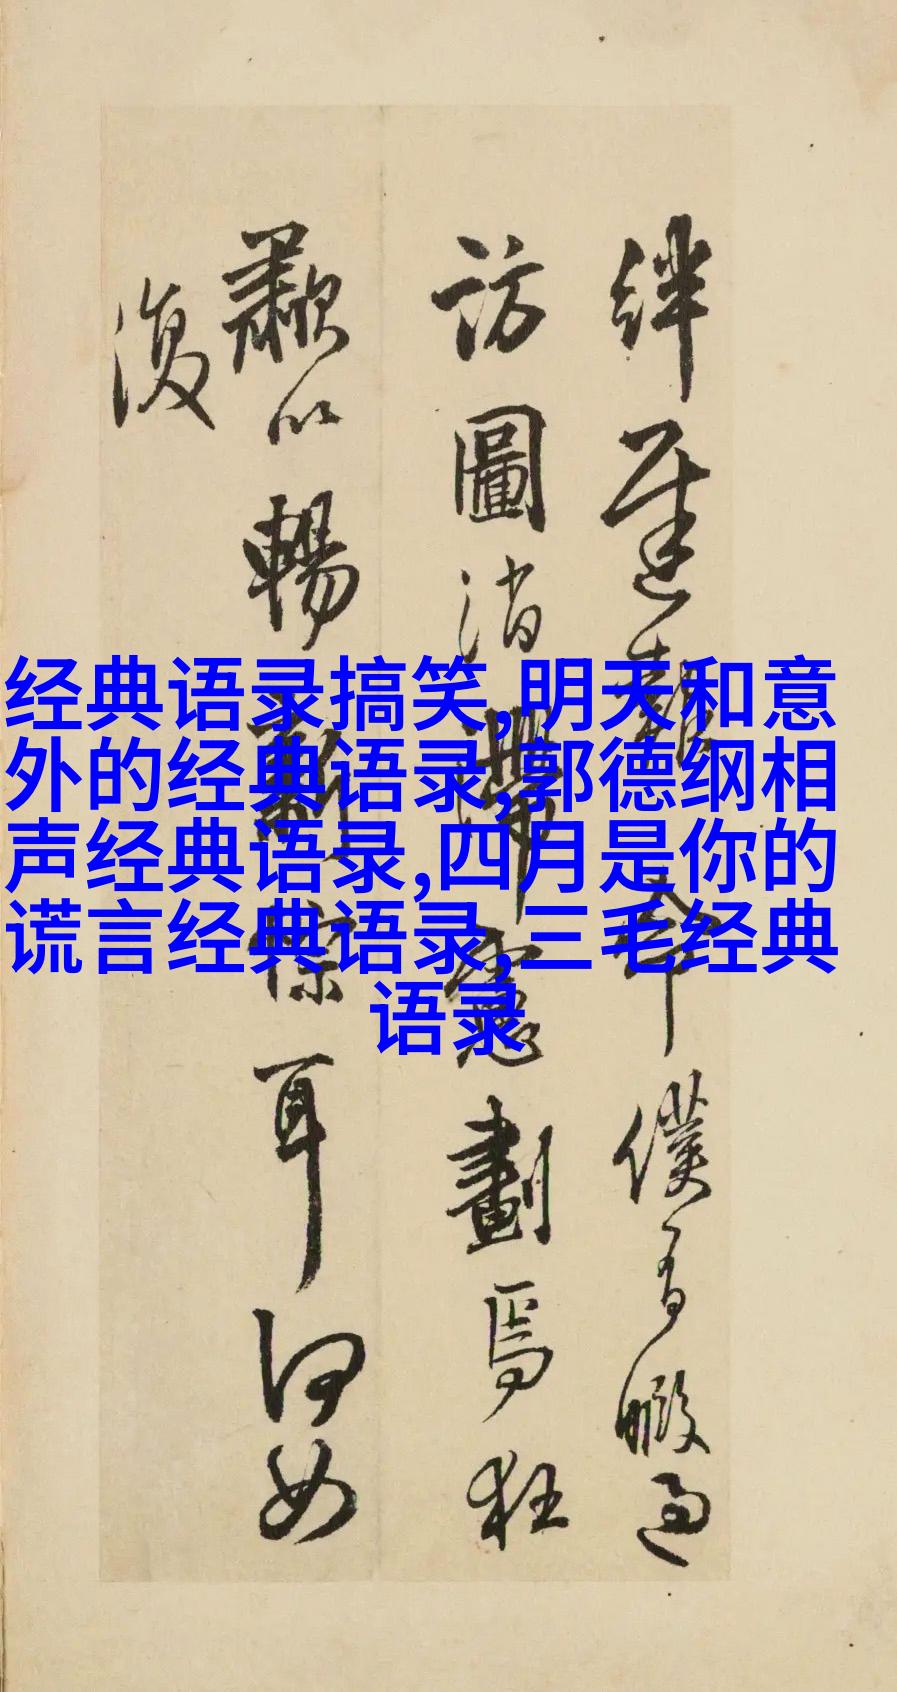 绊
僕有暇過
訪圖消滯慮劃焉狂
歗以暢
耳何如
復
经典语录搞笑,明天和意
外的经典语录,郭德纲相
声经典语录,四月是你的
谎言经典语录,三毛经典
语录